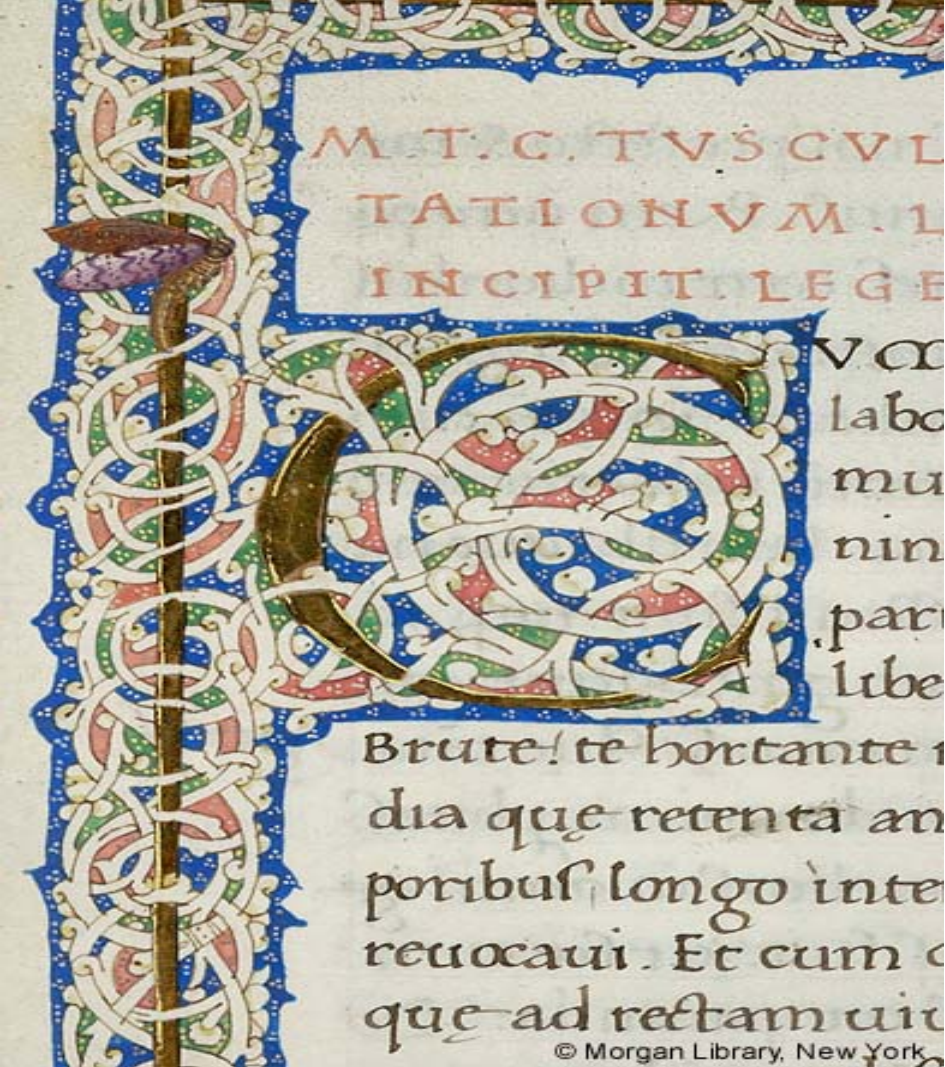 M. T. C. TVSCVL
TATIONVM. L
INCIPIT. LEGE
CVM
labo
mu
nin
part
libe
Brute! te hortante r
dia quę retenta an
poribuſ longo inte
reuocaui. Et cum
quę ad rectam uiu
© Morgan Library, New York